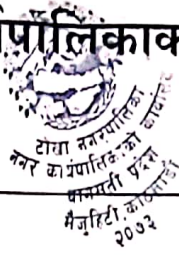 पालिकाक
टोखा नगरपालिका
नगर कार्यपालिकाको कार्यालय
बागमती प्रदेश
मैजुहिटी, काठमाडौं
२०७३